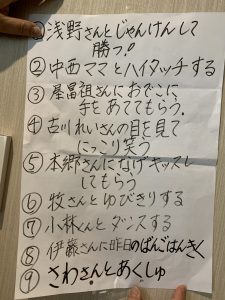 ①浅野さんとじゃんけんして
勝つ!
②中西ママとハイタッチする
③屋冨祖さんにおでこに
手をあててもらう。
④古川れいさんの目を見て
にっこり笑う
⑤本郷さんになげキッスし
てもらう
⑥牧さんとゆびきりする
⑦小林くんとダンスする
⑧伊藤さんに昨日のばんごはんきく
⑨さわさんとあくしゅ